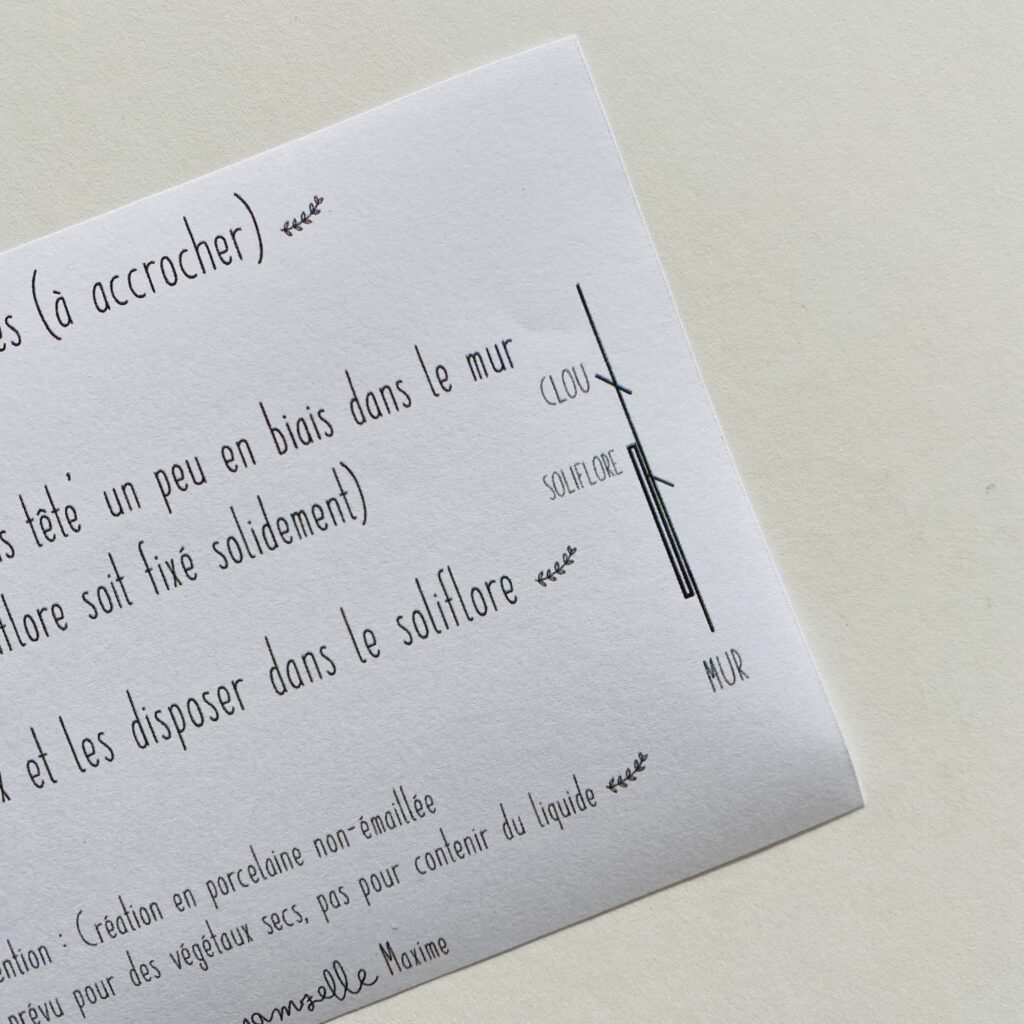 (à accrocher)
têté un peu en biais dans le mur
soit fixé solidement)
et les disposer dans le soliflore
CLOU
SOLIFLORE
MUR
: Création en porcelaine non-émaillée
prévu pour des végétaux secs, pas pour contenir du liquide
Maxime